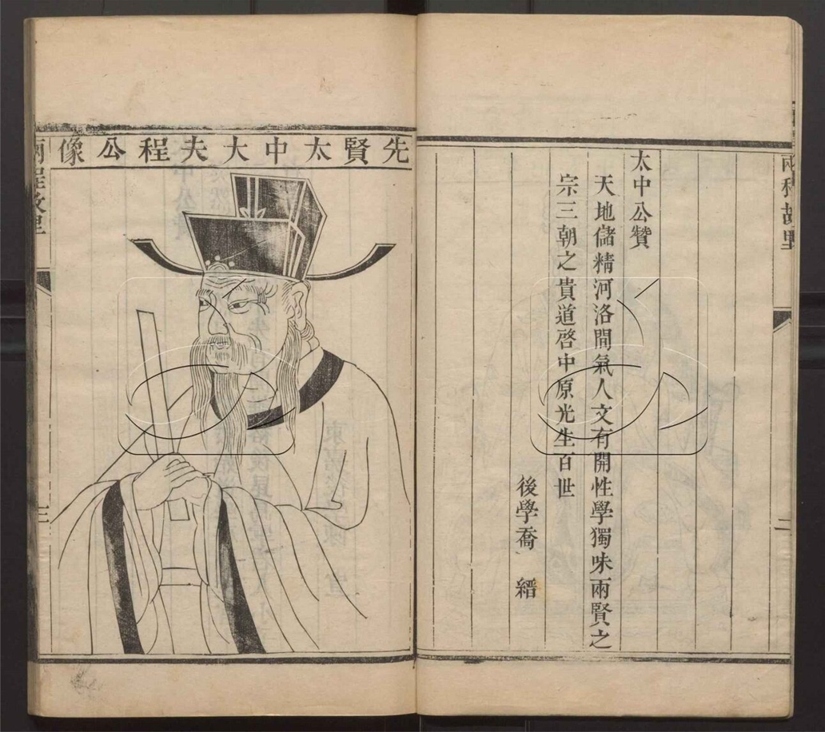 兩程故里
二
太中公贊
天地儲精河洛間氣人文有開性學獨味兩賢之
宗三朝之貴道啓中原光生百世
後學喬縉
先賢太中大夫程公像
兩程故里
三